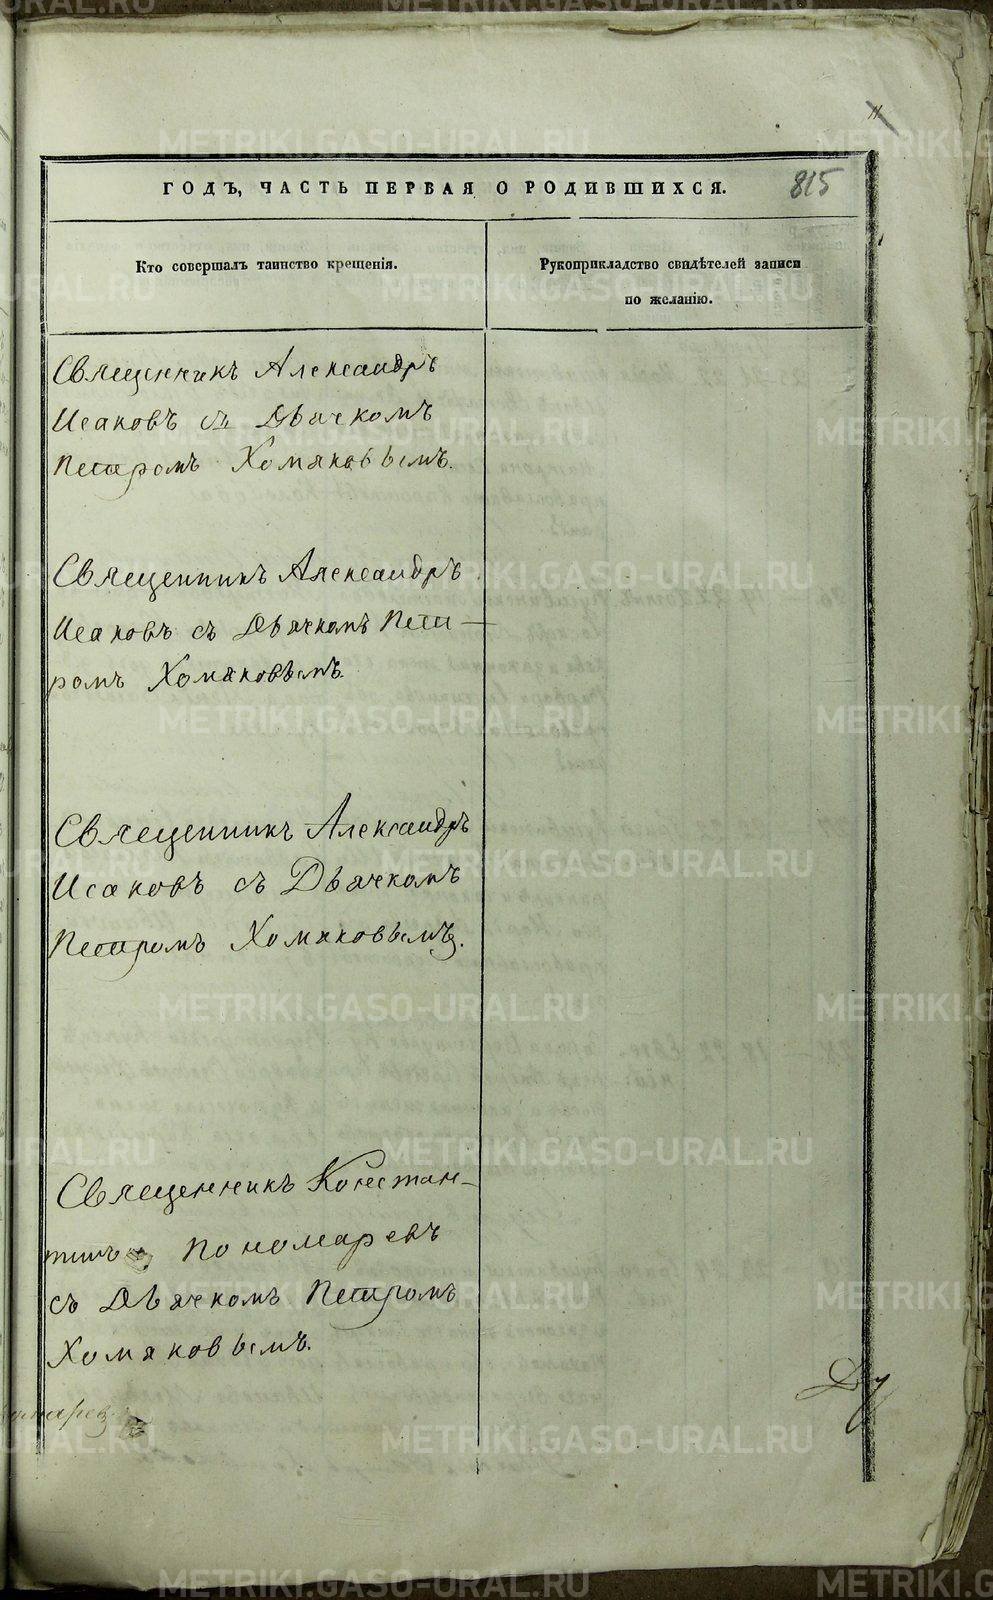 11
815
ГОДЪ, ЧАСТЬ ПЕРВАЯ О РОДИВШИХСЯ.
Кто совершалъ таинство крещенія.
Рукоприкладство свидѣтелей записи
по желанію.
Священникъ Александръ
Исаковъ съ Дьячкомъ
Петромъ Хомяковымъ.
Священникъ Александръ
Исаковъ съ Дьячкомъ Пет-
ромъ Хомяковымъ.
Священникъ Александръ
Исаковъ съ Дьячкомъ
Петромъ Хомяковымъ.
Священникъ Констан-
тинъ Пономаревъ
съ Дьячкомъ Петромъ
Хомяковымъ.
METRIKI.GASO-URAL.RU